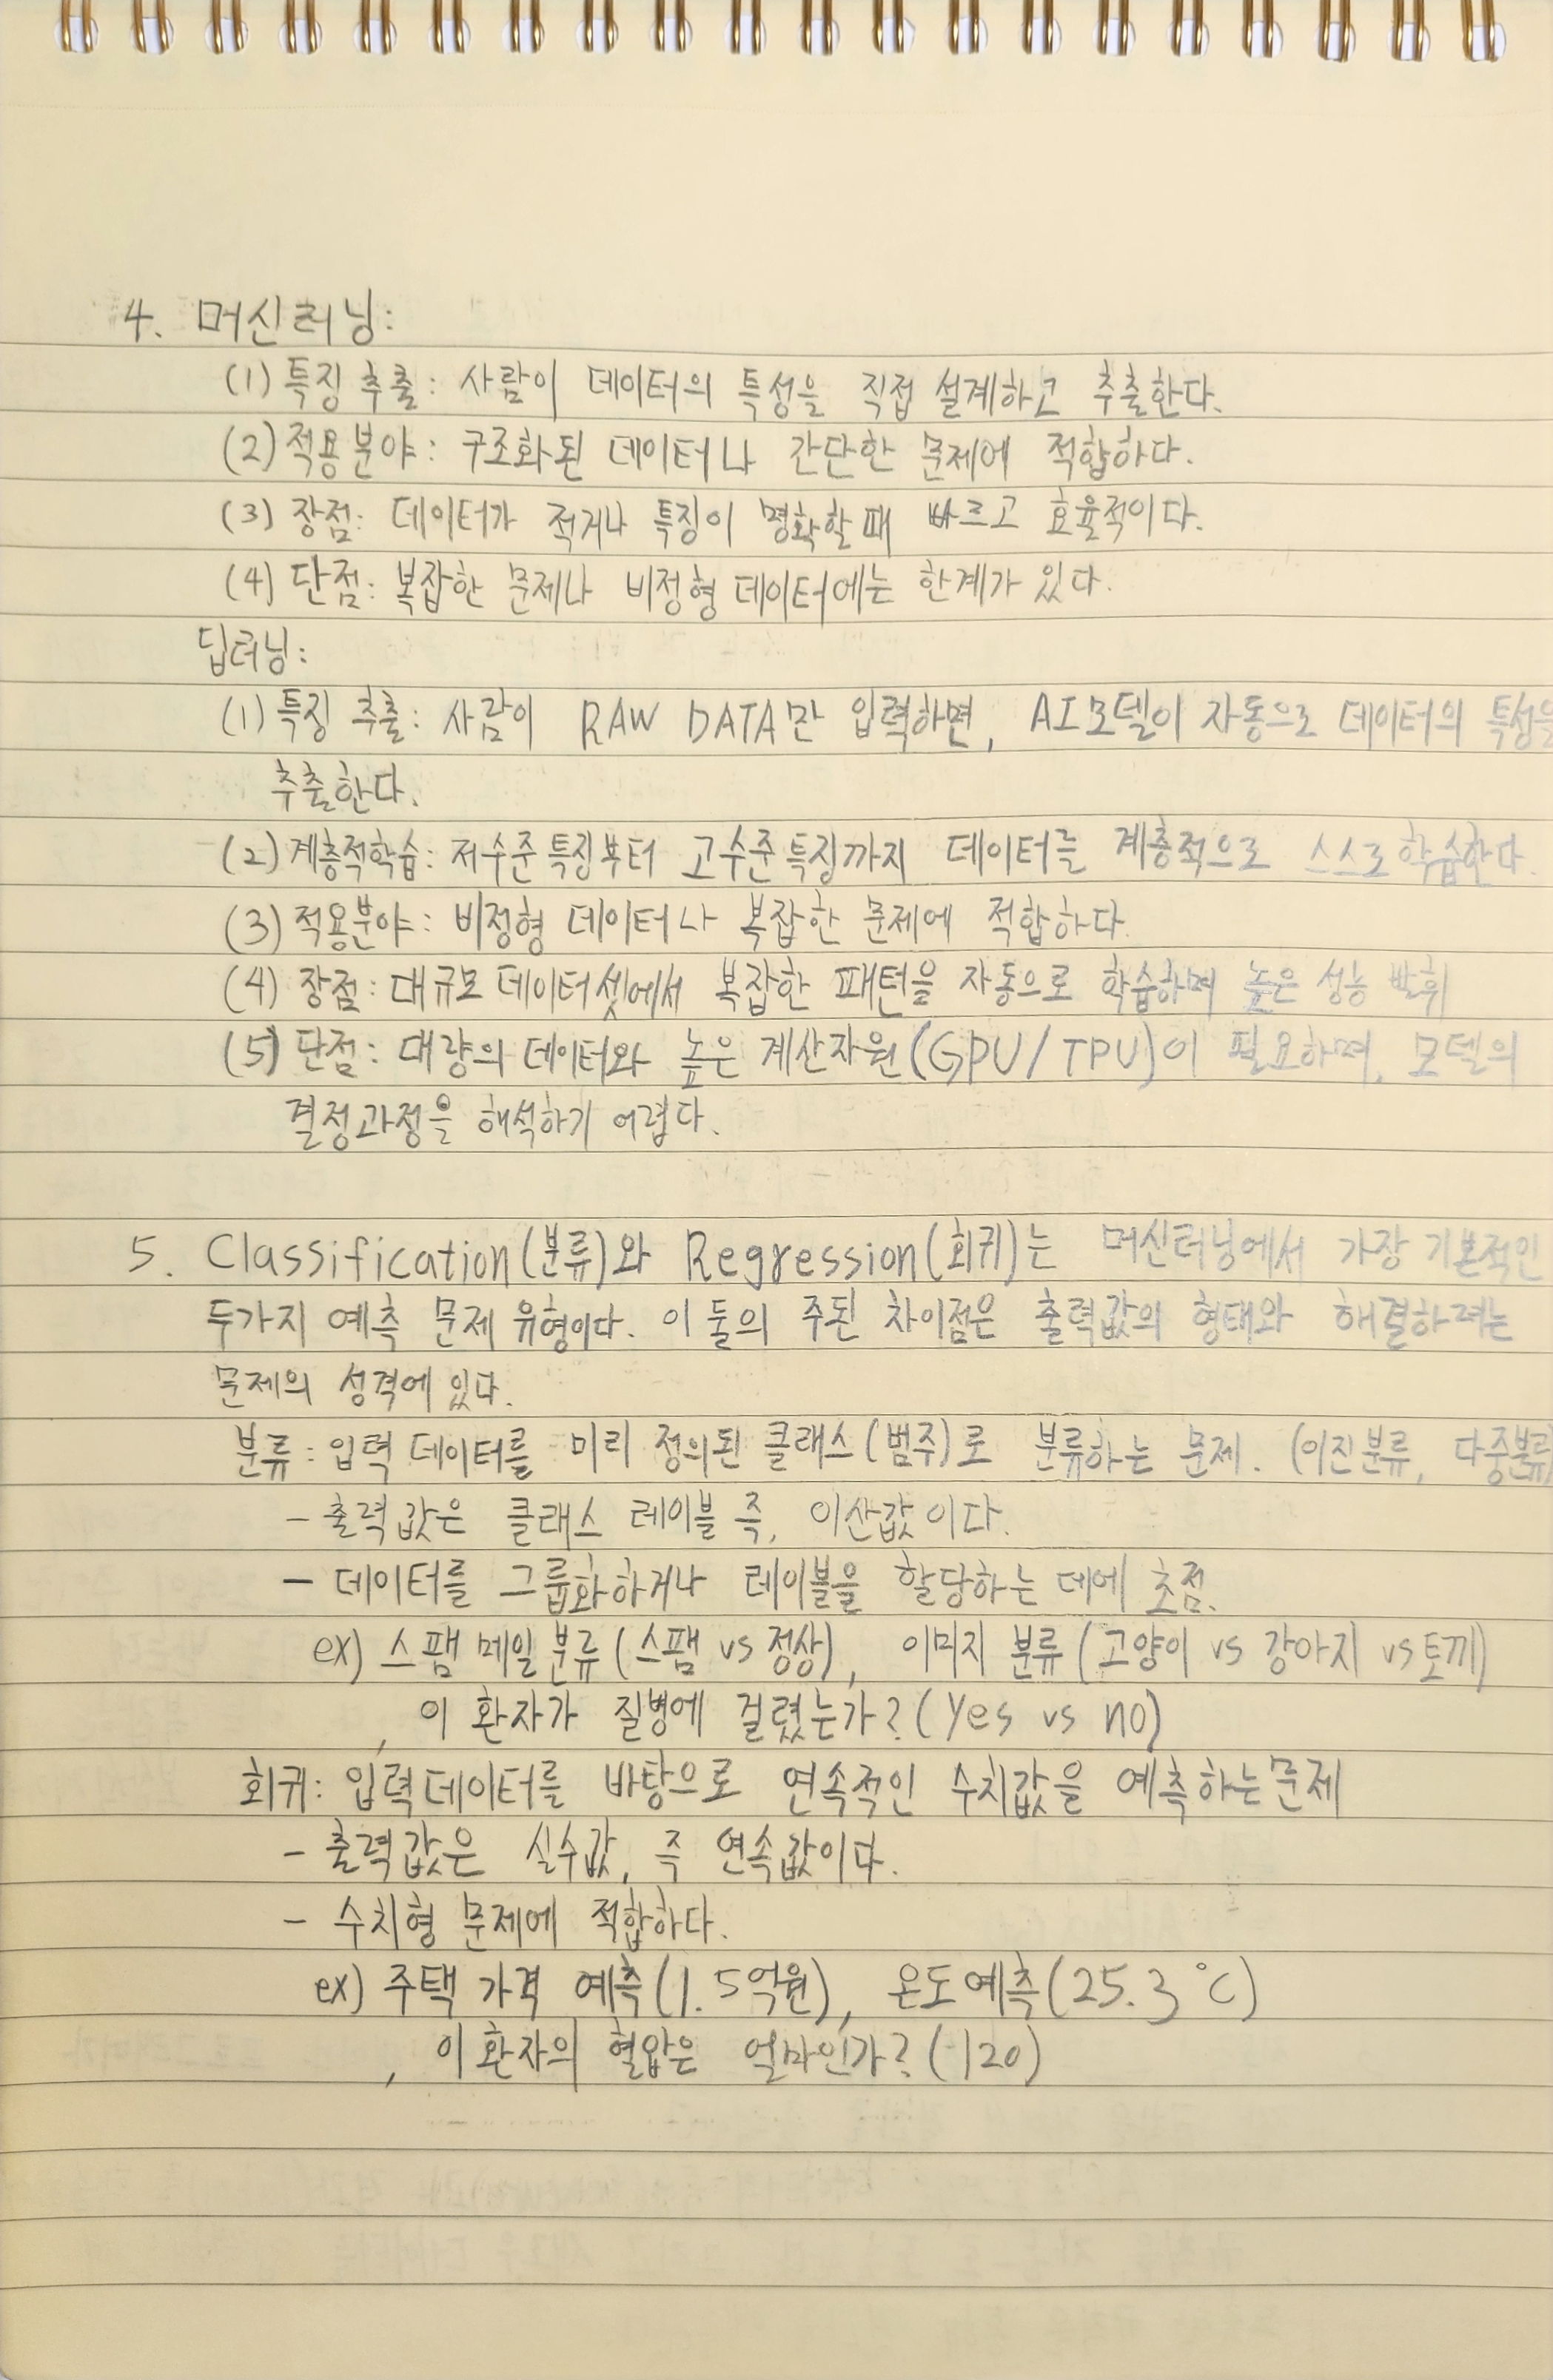 4. 머신러닝:
(1) 특징 추출: 사람이 데이터의 특성을 직접 설계하고 추출한다.
(2) 적용분야: 구조화된 데이터나 간단한 문제에 적합하다.
(3) 장점: 데이터가 적거나 특징이 명확할때 빠르고 효율적이다.
(4) 단점: 복잡한 문제나 비정형 데이터에는 한계가 있다.
딥러닝:
(1) 특징 추출: 사람이 RAW DATA만 입력하면, AI모델이 자동으로 데이터의 특성을
추출한다.
(2) 계층적학습: 저수준 특징부터 고수준 특징까지 데이터를 계층적으로 스스로 학습한다.
(3) 적용분야: 비정형 데이터나 복잡한 문제에 적합하다.
(4) 장점: 대규모 데이터셋에서 복잡한 패턴을 자동으로 학습하며 높은 성능 발휘
(5) 단점: 대량의 데이터와 높은 계산자원(GPU/TPU)이 필요하며, 모델의
결정과정을 해석하기 어렵다.
5. Classification(분류)와 Regression(회귀)는 머신러닝에서 가장 기본적인
두가지 예측 문제 유형이다. 이 둘의 주된 차이점은 출력값의 형태와 해결하려는
문제의 성격에 있다.
분류: 입력 데이터를 미리 정의된 클래스(범주)로 분류하는 문제. (이진분류, 다중분류)
- 출력값은 클래스 레이블 즉, 이산값이다.
- 데이터를 그룹화하거나 레이블을 할당하는 데에 초점.
ex) 스팸 메일 분류(스팸 vs 정상), 이미지 분류(고양이 vs 강아지 vs 토끼)
, 이 환자가 질병에 걸렸는가? (Yes vs no)
회귀: 입력데이터를 바탕으로 연속적인 수치값을 예측하는 문제
- 출력값은 실수값, 즉 연속값이다.
- 수치형 문제에 적합하다.
ex) 주택 가격 예측(1.5억원), 온도예측(25.3℃)
, 이 환자의 혈압은 얼마인가? (120)